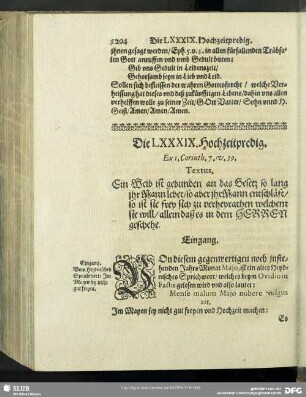 5204 Die LXXXIX. Hochzeitpredig.
ihnen gesagt werden/ Eph. 5. v. 5. in allen fürfallenden Trübsa-
len Gott anruffen und umb Gedult bitten:
Gib uns Gedult in Leidenszeit/
Gehorsamb seyn in Lieb und Leid.
Sollen sich befleissen der wahren Gottesforcht / welche Ver-
heissung hat dieses und deß zukünfftigen Lebens/ dahin uns allen
verhelffen wolle zu seiner Zeit/ Gott Vatter/ Sohn unnd H.
Geist/ Amen/ Amen/ Amen.
Die LXXXIX. Hochzeitpredig.
Ex 1. Corinth. 7. v. 39.
Textus.
Ein Weib ist gebunden an das Gesetz so lang
ihr Mann lebet/ so aber ihr Mann entschläft/
so ist sie frey sich zu verheyrathen welchem
sie will/ allein daß es in dem HERREN
geschehe.
Eingang.
Eingang.
Vom Heydnischen
Sprichwort: Im
Mayen sey nicht
gut freyen.
Von diesem gegenwertigen noch inste-
henden Jahrs Monat Majo, ist ein altes Heyd-
nisches Sprichwort/ welches beym Ovidio in
Fastis gelesen wird und also lautet:
Mense malum Majo nubere vulgus
ait.
Im Mayen sey nicht gut freyen und Hochzeit machen:
Es
SLUB